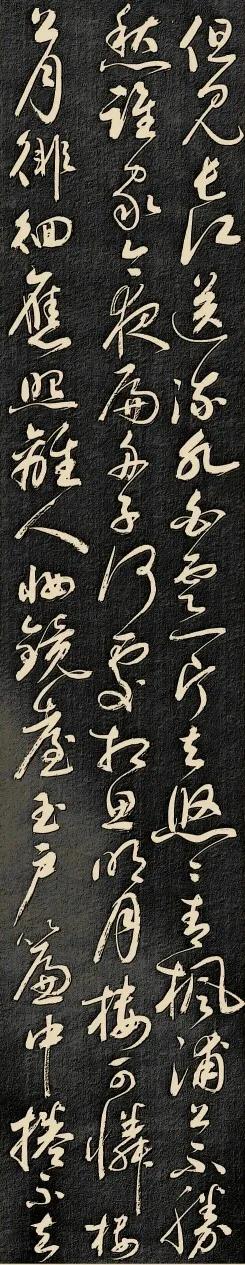 但見長江送流水白雲一片去悠悠青楓浦上不勝
愁誰家今夜扁舟子何處相思明月樓可憐樓
上月徘徊應照離人妝鏡臺玉戶簾中捲不去